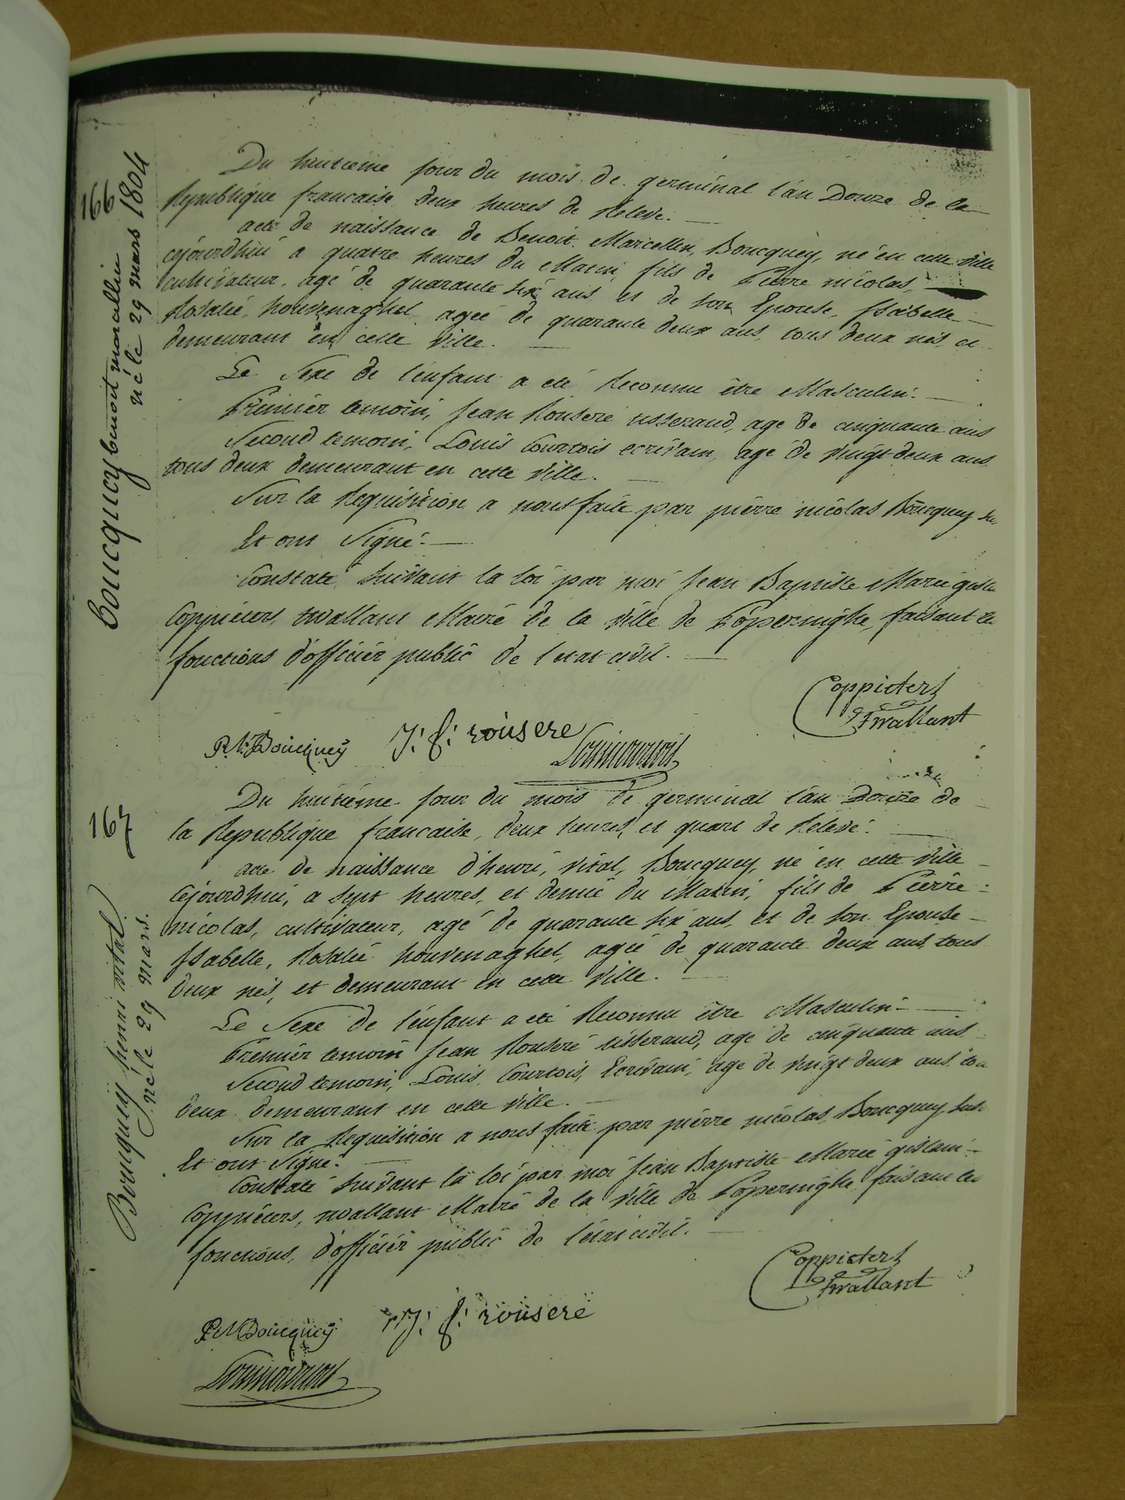 166
boucquey benoit marcellin
né le 29 mars 1804
Du huitieme jour du mois de germinal l'an Douze de la
Republique francaise deux heures de Relevé.
acte de naissance de Benoit Marcellin, Boucquey, né en cette ville
cejourdhui a quatre heures du Matin, fils de Pierre nicolas
cultivateur, agé de quarante six ans et de son Epouse, Isabelle
Rosalie, houvenaghel, agée de quarante deux ans, tous deux nés, et
demeurant en cette ville.
Le Sexe de l'enfant a eté Reconnu être Masculin.
Premier temoin, Jean Rousere tisserand, agé de cinquante ans
Second temoin, Louis Courtois ecrivain, agé de vingt deux ans
tous deux demeurant en cette ville.
Sur la Requisition a nous faite par pierre nicolas Boucquey
Et ont Signé.
Constaté suivant la loi par moi Jean Baptiste Marie
Coppieters, twallant Maire de la ville de Poperinghe, faisant les
fonctions d'officier public de l'etat civil.
Coppieters
Twallant
P. N. Boucquey J: f: rousere
167
Boucquey henri vital.
né le 29 mars.
Du huitiéme jour du mois de germinal l'an Douze de
la Republique francaise, deux heures, et quart de Relevé.
acte de naissance d'henri, vital, Boucquey, né en cette ville
cejourdhui, a sept heures, et demie du Matin, fils de Pierre
nicolas, cultivateur, agé de quarante six ans, et de son Epouse
Isabelle, Rosalie houvenaghel, agée de quarante deux ans, tous
deux nés, et demeurant en cette ville.
Le Sexe de l'enfant a eté Reconnu être Masculin
Premier temoin Jean Rouseré tisserand, agé de cinquante ans
Second temoin, Louis Courtois, Ecrivain, age de vingt deux ans
deux demeurant en cette ville.
Sur la Requisition a nous faite par pierre nicolas Boucquey
Et ont Signé.
Constaté suivant la loi par moi Jean Baptiste Marie gislain
Coppieters, twallant Maire de la ville de Poperinghe faisant les
fonctions, d'officier public de l'etat civil.
Coppieters
Twallant
P. N. Boucquey J: f: rousere